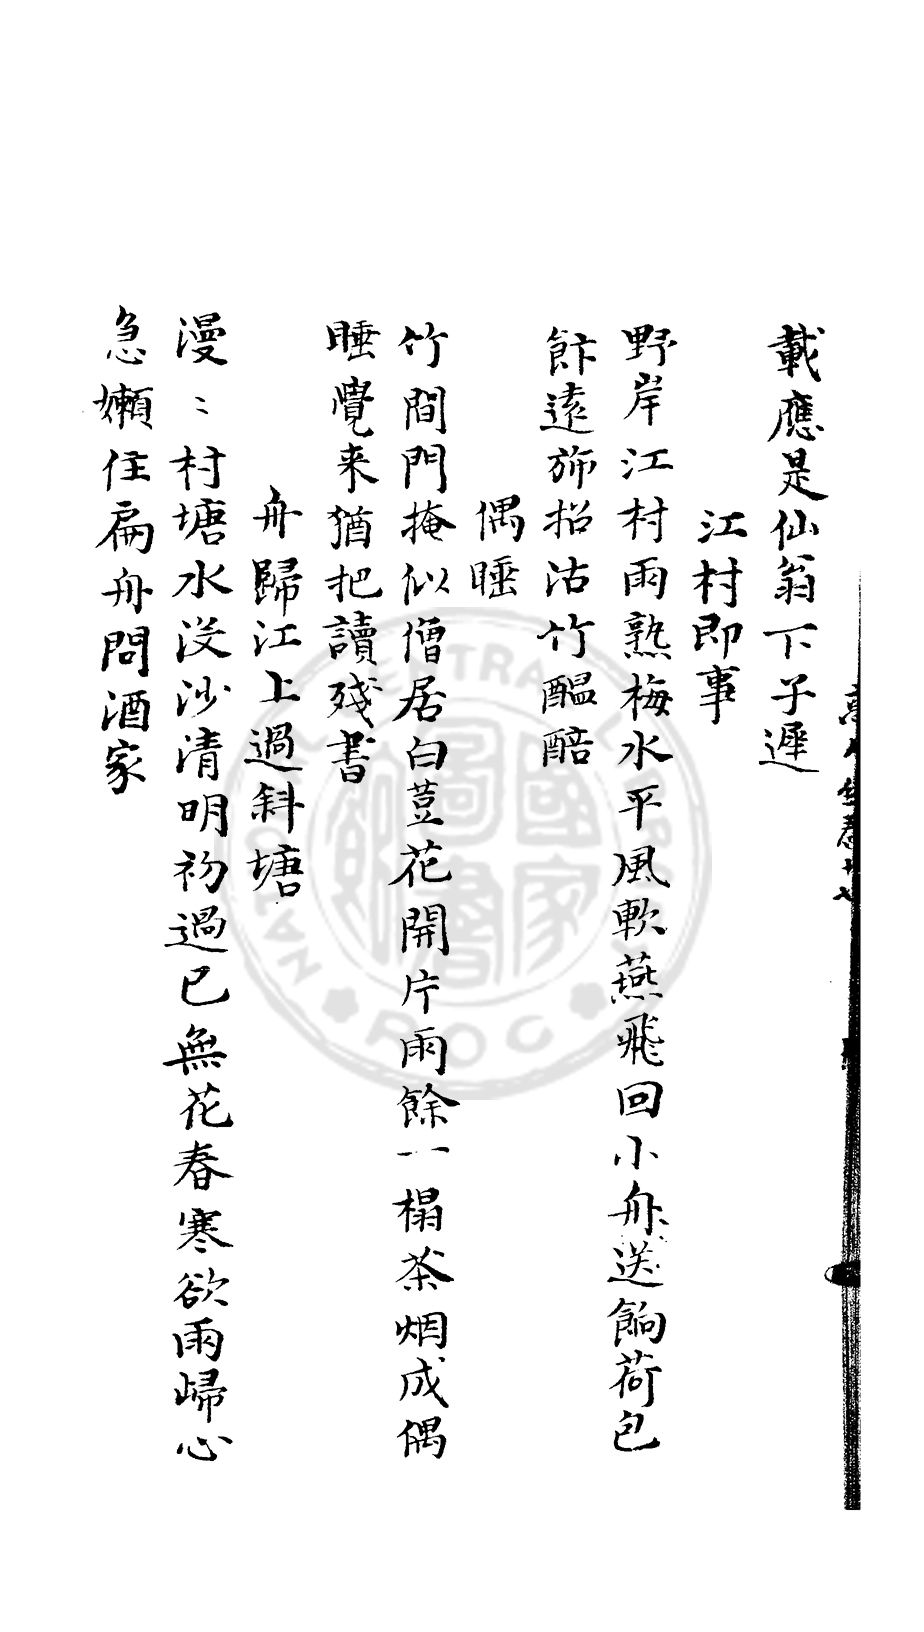 載應是仙翁下子遲
江村即事
野岸江村雨熟梅水平風軟燕飛回小舟送餉荷包
飰遠斾招沽竹醖醅
偶睡
竹間門掩似僧居白荳花開片雨餘一榻茶烟成偶
睡覺来猶把讀殘書
舟歸江上過斜塘
漫〻村塘水沒沙清明初過已無花春寒欲雨歸心
急嬾住扁舟問酒家